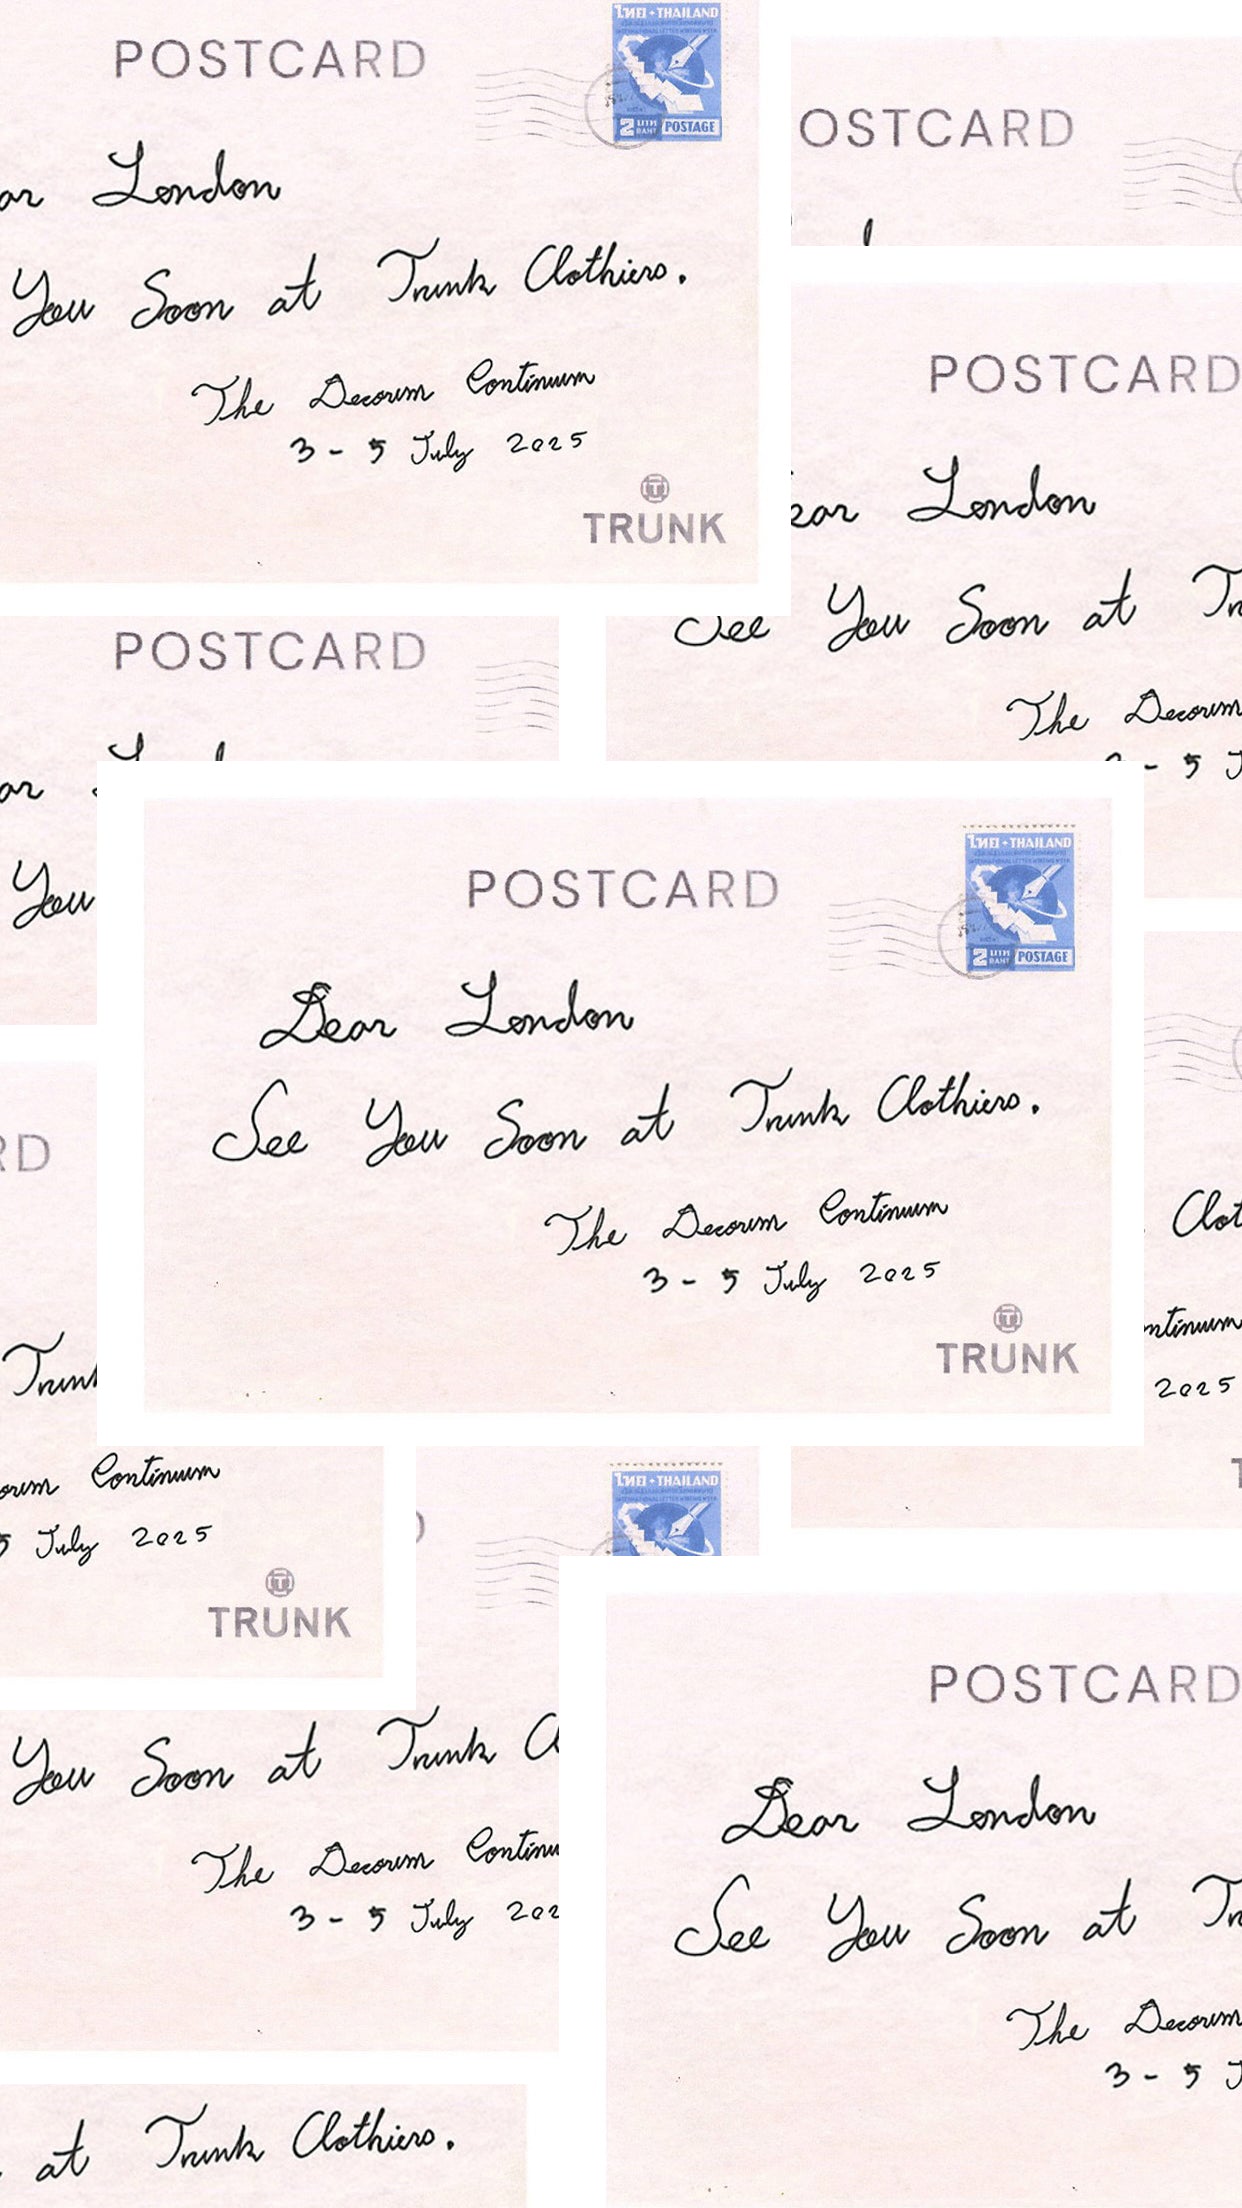 POSTCARD
ไทย + THAILAND
2 บาท BAHT POSTAGE
ar London
You Soon at Trunk Clothiers.
The Decorum Continuum
3 - 5 July 2025
TRUNK
OSTCARD
POSTCARD
ear London
See You Soon at
The Decorum
- 5 J
POSTCARD
ar
You
POSTCARD
ไทย + THAILAND
2 บาท BAHT POSTAGE
Dear London
See You Soon at Trunk Clothiers.
The Decorum Continuum
3 - 5 July 2025
TRUNK
Clot
ntinuum
2025
RD
Trunk
orum Continuum
5 July 2025
TRUNK
ไทย + THAILAND
You Soon at Trunk
The Decorum Continu
3 - 5 July 202
POSTCARD
Dear London
See You Soon at
The Decorum
3 - 5 J
at Trunk Clothiers.